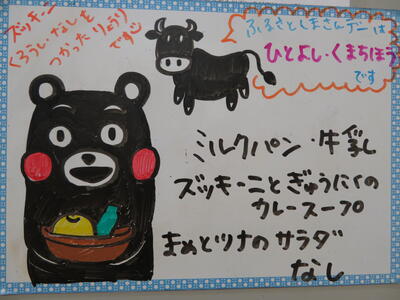 ズッキーニ
くろうし・なしを
つかったりょうり
です
ふるさとくまさんデーは
ひとよし・くまちほう
です
ミルクパン・牛乳
ズッキーニとぎゅうにくの
カレースープ
まめとツナのサラダ
なし